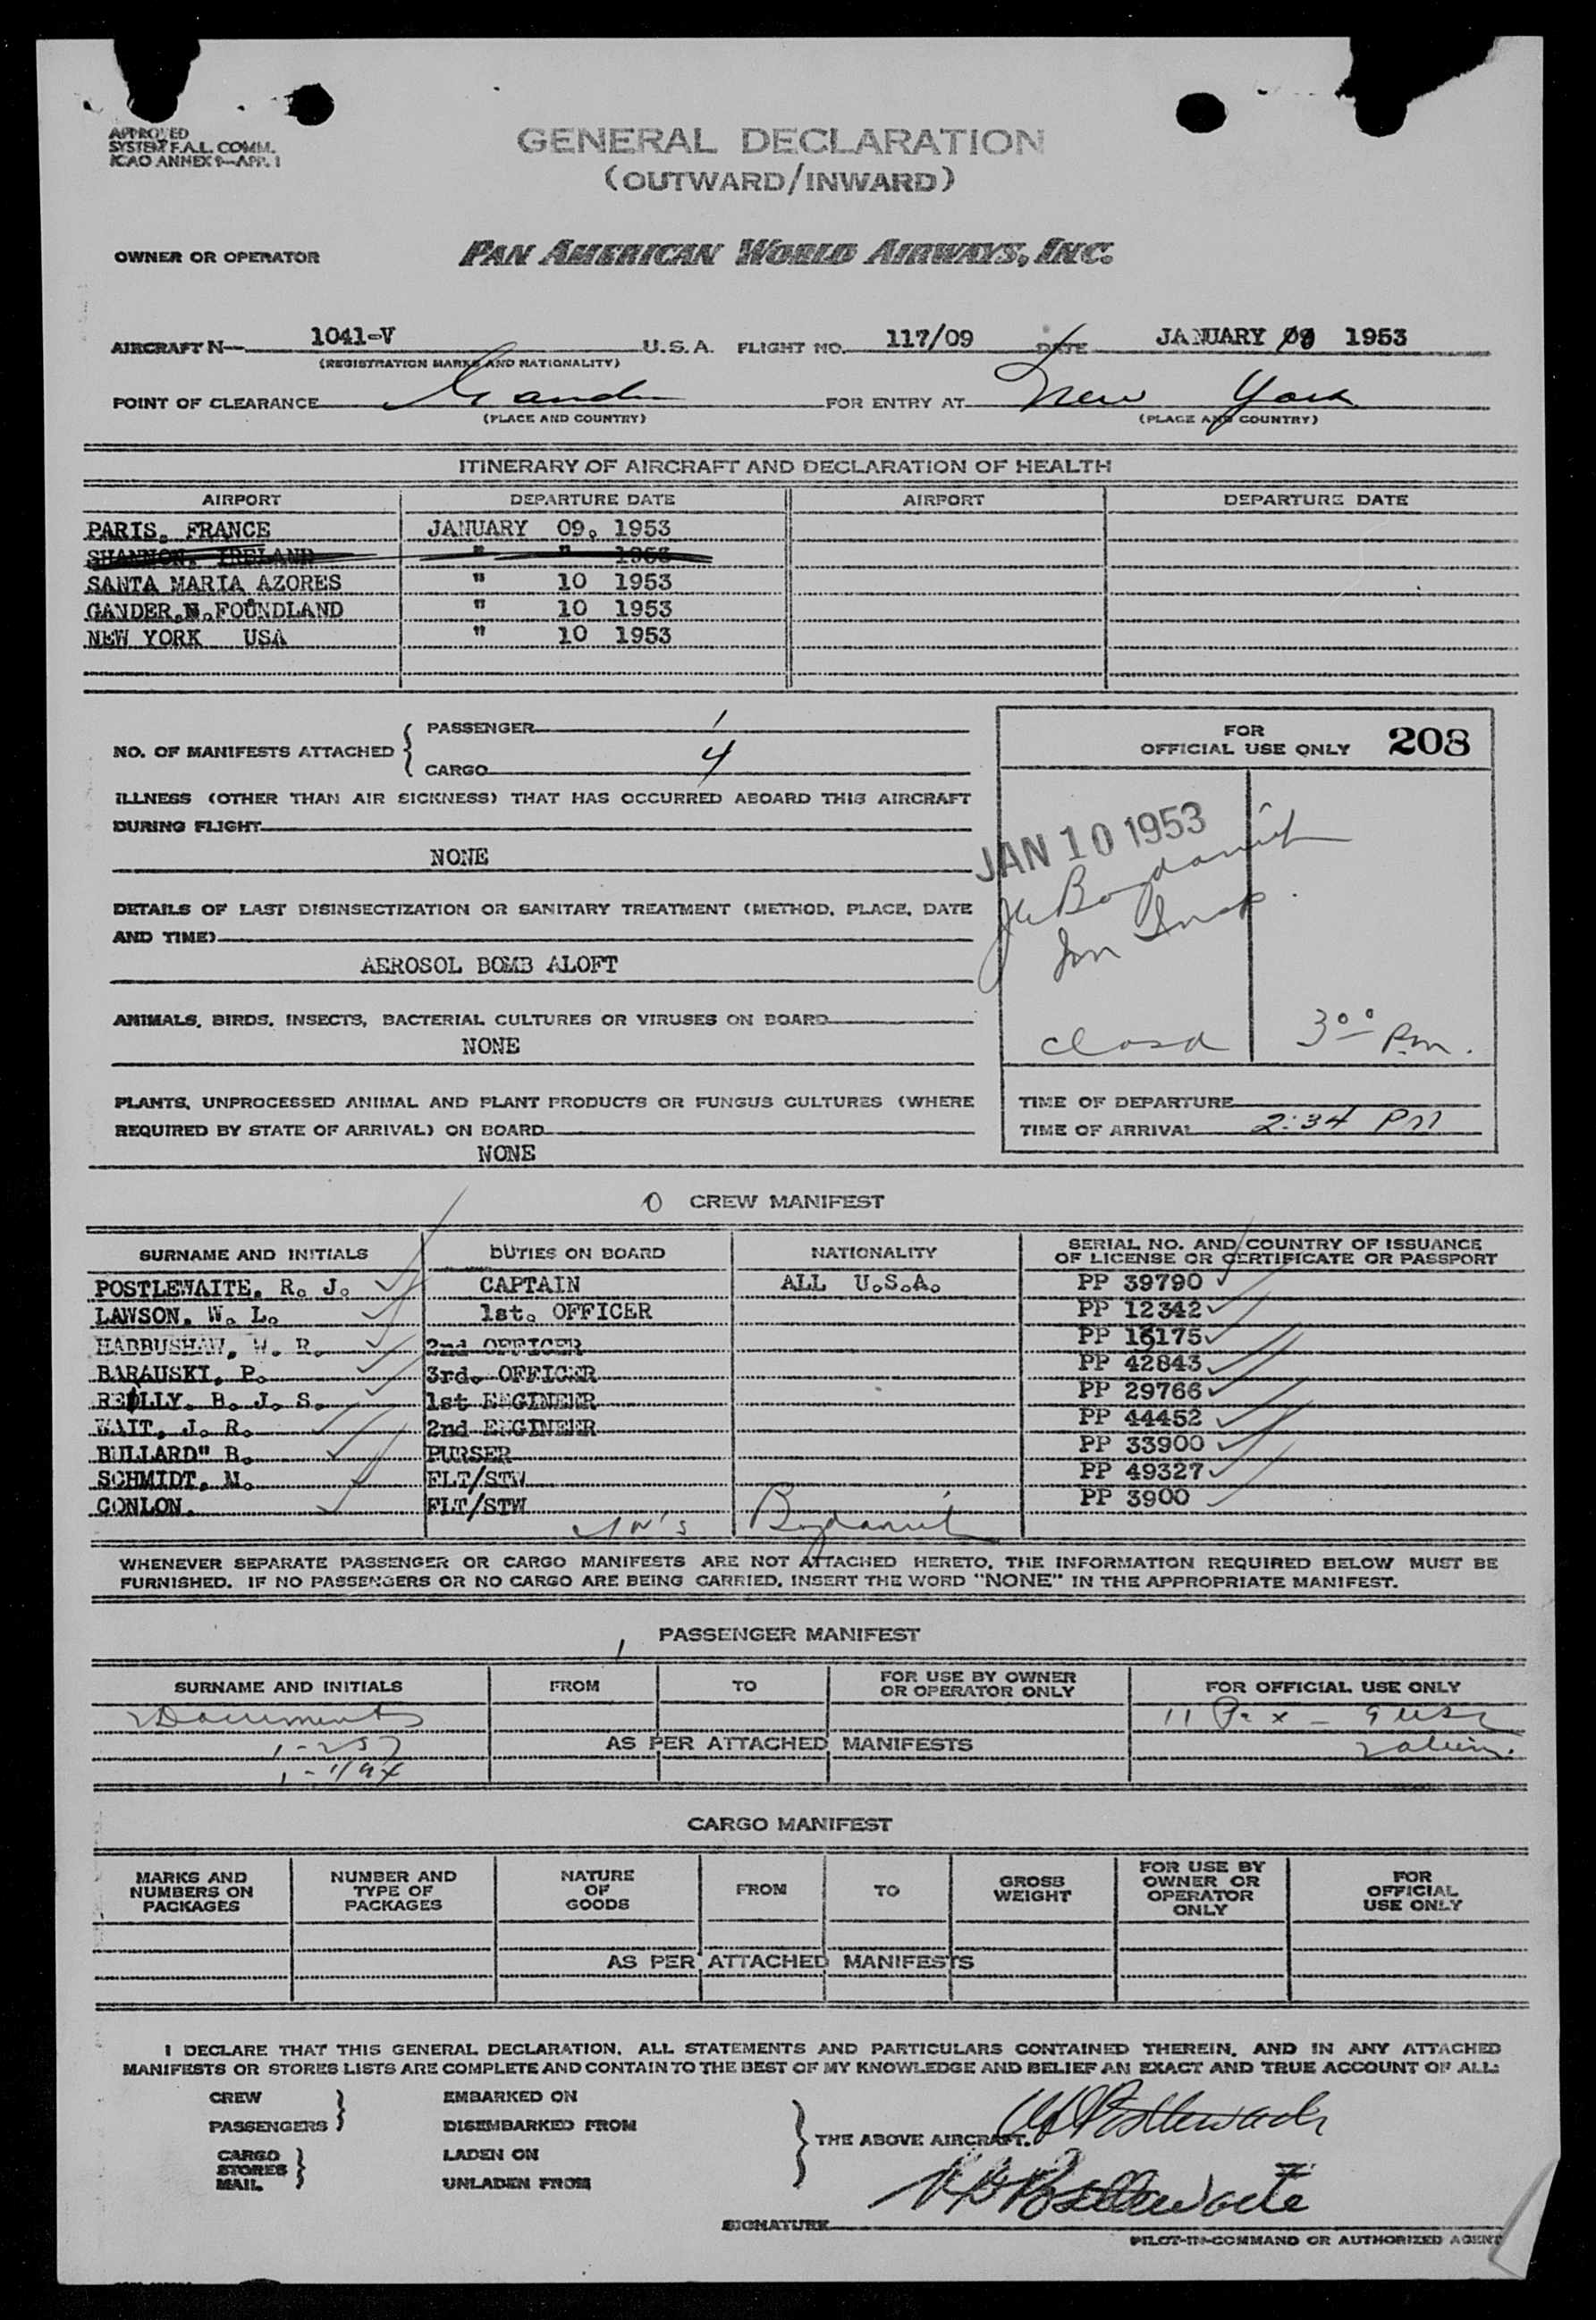 APPROVED
SYSTEM F.A.L. COMM.
ICAO ANNEX 9—APP. 1
GENERAL DECLARATION
(OUTWARD/INWARD)
OWNER OR OPERATOR PAN AMERICAN WORLD AIRWAYS, INC.
AIRCRAFT N— 1041-V U.S.A. FLIGHT NO. 117/09 DATE JANUARY 09 1953
(REGISTRATION MARKS AND NATIONALITY)
POINT OF CLEARANCE Gander FOR ENTRY AT New York
(PLACE AND COUNTRY) (PLACE AND COUNTRY)
ITINERARY OF AIRCRAFT AND DECLARATION OF HEALTH
AIRPORT DEPARTURE DATE AIRPORT DEPARTURE DATE
PARIS, FRANCE JANUARY 09. 1953
SHANNON, IRELAND " " 1953
SANTA MARIA AZORES " 10 1953
GANDER,N.FOUNDLAND " 10 1953
NEW YORK USA " 10 1953
NO. OF MANIFESTS ATTACHED
PASSENGER 1
CARGO 4
FOR
OFFICIAL USE ONLY 208
ILLNESS (OTHER THAN AIR SICKNESS) THAT HAS OCCURRED ABOARD THIS AIRCRAFT
DURING FLIGHT
NONE
JAN 10 1953
DETAILS OF LAST DISINSECTIZATION OR SANITARY TREATMENT (METHOD, PLACE, DATE
AND TIME)
AEROSOL BOMB ALOFT
Imm Insp.
ANIMALS, BIRDS, INSECTS, BACTERIAL CULTURES OR VIRUSES ON BOARD
NONE
closed 3°° Pm.
PLANTS, UNPROCESSED ANIMAL AND PLANT PRODUCTS OR FUNGUS CULTURES (WHERE
REQUIRED BY STATE OF ARRIVAL) ON BOARD
NONE
TIME OF DEPARTURE
TIME OF ARRIVAL 2:34 PM
0 CREW MANIFEST
SURNAME AND INITIALS DUTIES ON BOARD NATIONALITY SERIAL NO. AND COUNTRY OF ISSUANCE
OF LICENSE OR CERTIFICATE OR PASSPORT
POSTLEWAITE, R. J. CAPTAIN ALL U.S.A. PP 39790
LAWSON, W. L. 1st. OFFICER PP 12342
HARBUSHAW, W. R. 2nd OFFICER PP 15175
BARAUSKI, P. 3rd. OFFICER PP 42843
REILLY, B. J. S. 1st ENGINEER PP 29766
WAIT, J. R. 2nd ENGINEER PP 44452
BULLARD" B. PURSER PP 33900
SCHMIDT, M. FLT/STW PP 49327
CONLON. FLT/STW PP 3900
WHENEVER SEPARATE PASSENGER OR CARGO MANIFESTS ARE NOT ATTACHED HERETO, THE INFORMATION REQUIRED BELOW MUST BE
FURNISHED. IF NO PASSENGERS OR NO CARGO ARE BEING CARRIED, INSERT THE WORD "NONE" IN THE APPROPRIATE MANIFEST.
1 PASSENGER MANIFEST
SURNAME AND INITIALS FROM TO FOR USE BY OWNER
OR OPERATOR ONLY FOR OFFICIAL USE ONLY
Documents 11 Pax - 9 USC
1-257 AS PER ATTACHED MANIFESTS 2 alien.
1-I194
CARGO MANIFEST
MARKS AND
NUMBERS ON
PACKAGES
NUMBER AND
TYPE OF
PACKAGES
NATURE
OF
GOODS
FROM
TO
GROSS
WEIGHT
FOR USE BY
OWNER OR
OPERATOR
ONLY
FOR
OFFICIAL
USE ONLY
AS PER ATTACHED MANIFESTS
I DECLARE THAT THIS GENERAL DECLARATION, ALL STATEMENTS AND PARTICULARS CONTAINED THEREIN, AND IN ANY ATTACHED
MANIFESTS OR STORES LISTS ARE COMPLETE AND CONTAIN TO THE BEST OF MY KNOWLEDGE AND BELIEF AN EXACT AND TRUE ACCOUNT OF ALL:
CREW EMBARKED ON
PASSENGERS DISEMBARKED FROM
THE ABOVE AIRCRAFT.
CARGO LADEN ON
STORES
MAIL UNLADEN FROM
Postlewaite
SIGNATURE
PILOT-IN-COMMAND OR AUTHORIZED AGENT